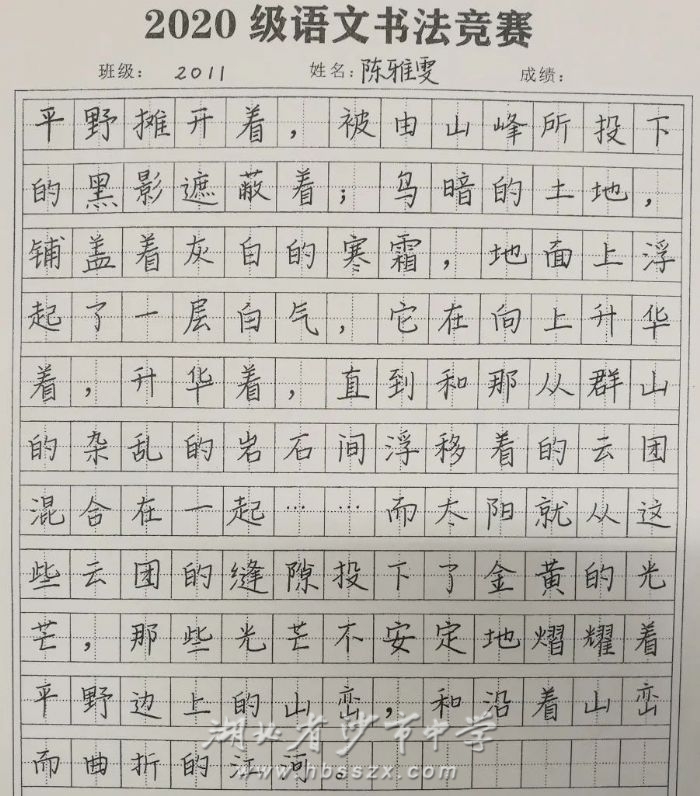 2020级语文书法竞赛
班级： 2011 姓名：陈雅雯 成绩：
平野摊开着，被由山峰所投下
的黑影遮蔽着；乌暗的土地，
铺盖着灰白的寒霜，地面上浮
起了一层白气，它在向上升华
着，升华着，直到和那从群山
的杂乱的岩石间浮移着的云团
混合在一起……而太阳就从这
些云团的缝隙投下了金黄的光
芒，那些光芒不安定地熠耀着
平野边上的山峦，和沿着山峦
而曲折的江河。
湖北省沙市中学
www.hbsszx.com